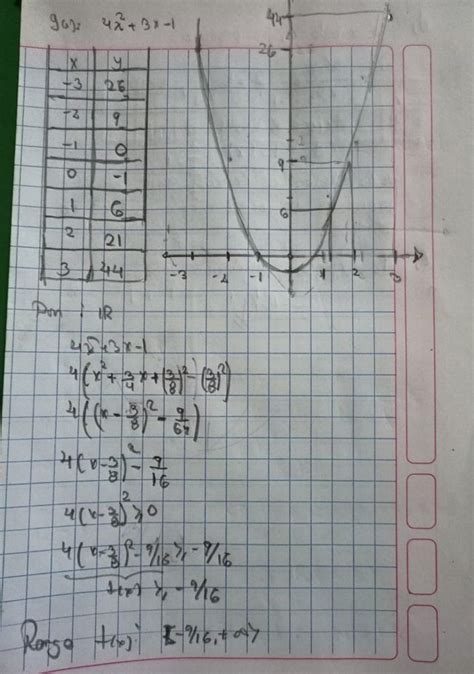 g(x): 4x²+3x-1
x | y
-3 | 26
-2 | 9
-1 | 0
0 | -1
1 | 6
2 | 21
3 | 44
44
26
9
6
-3 -2 -1 1 2 3
Dom : IR
4x²+3x-1
4(x²+3/4x+(3/8)²-(3/8)²)
4((x-3/8)²-9/64)
4(x-3/8)²-9/16
4(x-3/8)²≥0
4(x-3/8)²-9/16≥-9/16
f(x) ≥ -9/16
Rango f(x): [-9/16,+∞>